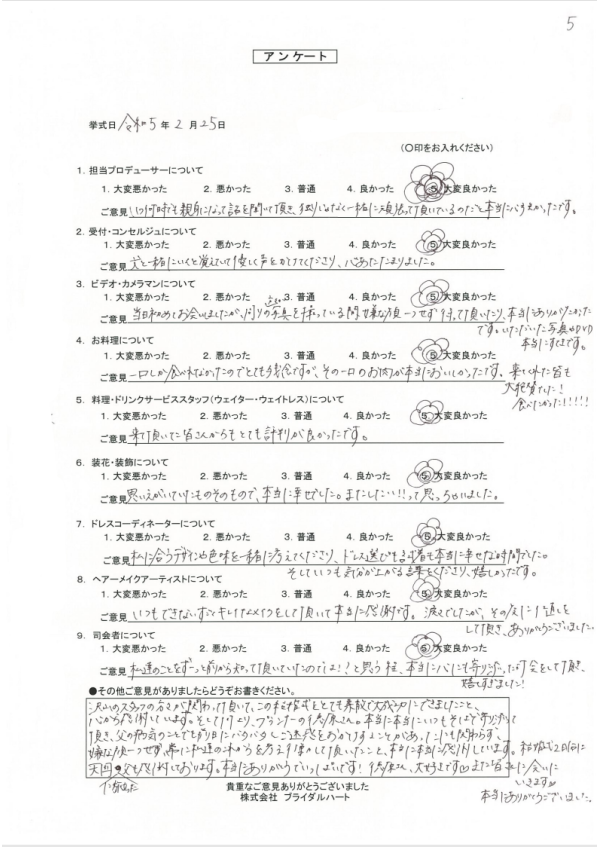 5
アンケート
挙式日 令和5年 2月 25日
(〇印をお入れください)
1. 担当プロデューサーについて
1. 大変悪かった 2. 悪かった 3. 普通 4. 良かった 5. 大変良かった
ご意見 いつ何時でも親身になって話を聞いて頂き、 一緒に頑張って頂いているのだと本当に心強かったです。
2. 受付・コンセルジュについて
1. 大変悪かった 2. 悪かった 3. 普通 4. 良かった 5. 大変良かった
ご意見 父と一緒にいくと覚えていて優しく声をかけてくださり、心あたたまりました。
3. ビデオ・カメラマンについて
1. 大変悪かった 2. 悪かった 3. 普通 4. 良かった 5. 大変良かった
ご意見 当日初めてお会いしましたが、 写真を撮っている間嫌な顔一つせず待って頂いたり、本当にありがたかった
です。いただいた写真やDVD
本当にすてきです。
4. お料理について
1. 大変悪かった 2. 悪かった 3. 普通 4. 良かった 5. 大変良かった
ご意見 一口しか食べれなかったのでとても残念ですが、その一口のお肉が本当においしかったです。来てくれた皆も
大絶賛でした!
食べたかった!!!!!
5. 料理・ドリンクサービススタッフ(ウェイター・ウェイトレス)について
1. 大変悪かった 2. 悪かった 3. 普通 4. 良かった 5. 大変良かった
ご意見 来て頂いた皆さんからもとても評判が良かったです。
6. 装花・装飾について
1. 大変悪かった 2. 悪かった 3. 普通 4. 良かった 5. 大変良かった
ご意見 思いえがいていたものそのもので、本当に幸せでした。またしたい!!って思っちゃいました。
7. ドレスコーディネーターについて
1. 大変悪かった 2. 悪かった 3. 普通 4. 良かった 5. 大変良かった
ご意見 私に合うデザインや色味を一緒に考えてくださり、ドレス選びも試着も本当に幸せな時間でした。
そしていつも気分が上がる言葉をくださり、嬉しかったです。
8. ヘアーメイクアーティストについて
1. 大変悪かった 2. 悪かった 3. 普通 4. 良かった 5. 大変良かった
ご意見 いつもできないすごくキレイなメイクをして頂いて本当に感謝です。涙 でしたが、その度に して頂き、ありがとうございました。
9. 司会者について
1. 大変悪かった 2. 悪かった 3. 普通 4. 良かった 5. 大変良かった
ご意見 私達のことをずーっと前から知って頂いていたのでは!?と思う程、本当に心にも寄りそった司会をして頂き、
嬉しすぎました!
●その他ご意見がありましたらどうぞお書きください。
沢山のスタッフの方々が関わって頂いて、この結婚式をとても素敵で大成功にできましたこと、
心から感謝しています。そして何より、プランナーの さん。本当に本当にいつもそばで寄りそって
頂き、父の病気のことでも前日にバタバタしご迷惑をおかけすることがあったにも関わらず、
嫌な顔一つせず、常に私達の を考え行動して頂いたこと、本当に本当に感謝しています。結婚式2日後に
天国 父も感謝しております。本当にありがとうでいっぱいです! さん、大好きです また皆 に会いに
いきます
本当にありがとうございました。
貴重なご意見ありがとうございました
株式会社 ブライダルハート